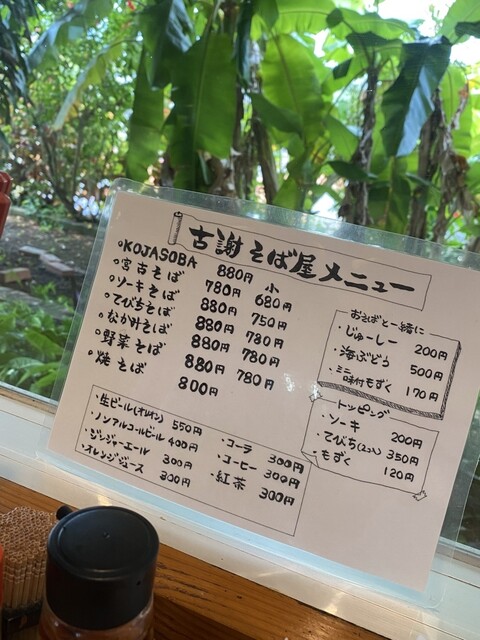 古謝そば屋メニュー
小
○KOJASOBA 880円
○宮古そば 780円 680円
○ソーキそば 880円 750円
○てびちそば 880円 780円
○なかみそば 880円 780円
○野菜そば 880円 780円
○焼そば 800円
おそばと一緒に
・じゅーしー 200円
・海ぶどう 500円
・ミニ味付もずく 170円
トッピング
・ソーキ 200円
・てびち(2コ) 350円
・もずく 120円
・生ビール(オリオン) 550円
・ノンアルコールビール 400円
・ジンジャーエール 300円
・オレンジジュース 300円
・コーラ 300円
・コーヒー 300円
・紅茶 300円